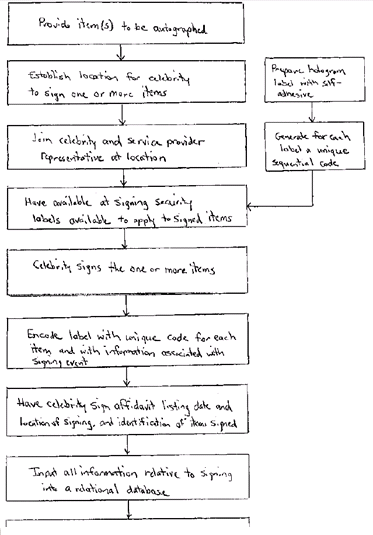 Provide item(s) to be autographed
Establish location for celebrity
to sign one or more items
Join celebrity and service provider
representative at location
Have available at signing security
labels available to apply to signed items
Prepare hologram
label with self-
adhesive
Generate for each
label a unique
sequential code
Celebrity signs the one or more items
Encode label with unique code for each
item and with information associated with
signing event
Have celebrity sign affidavit listing date and
location of signing, and identification of items signed
Input all information relative to signing
into a relational database